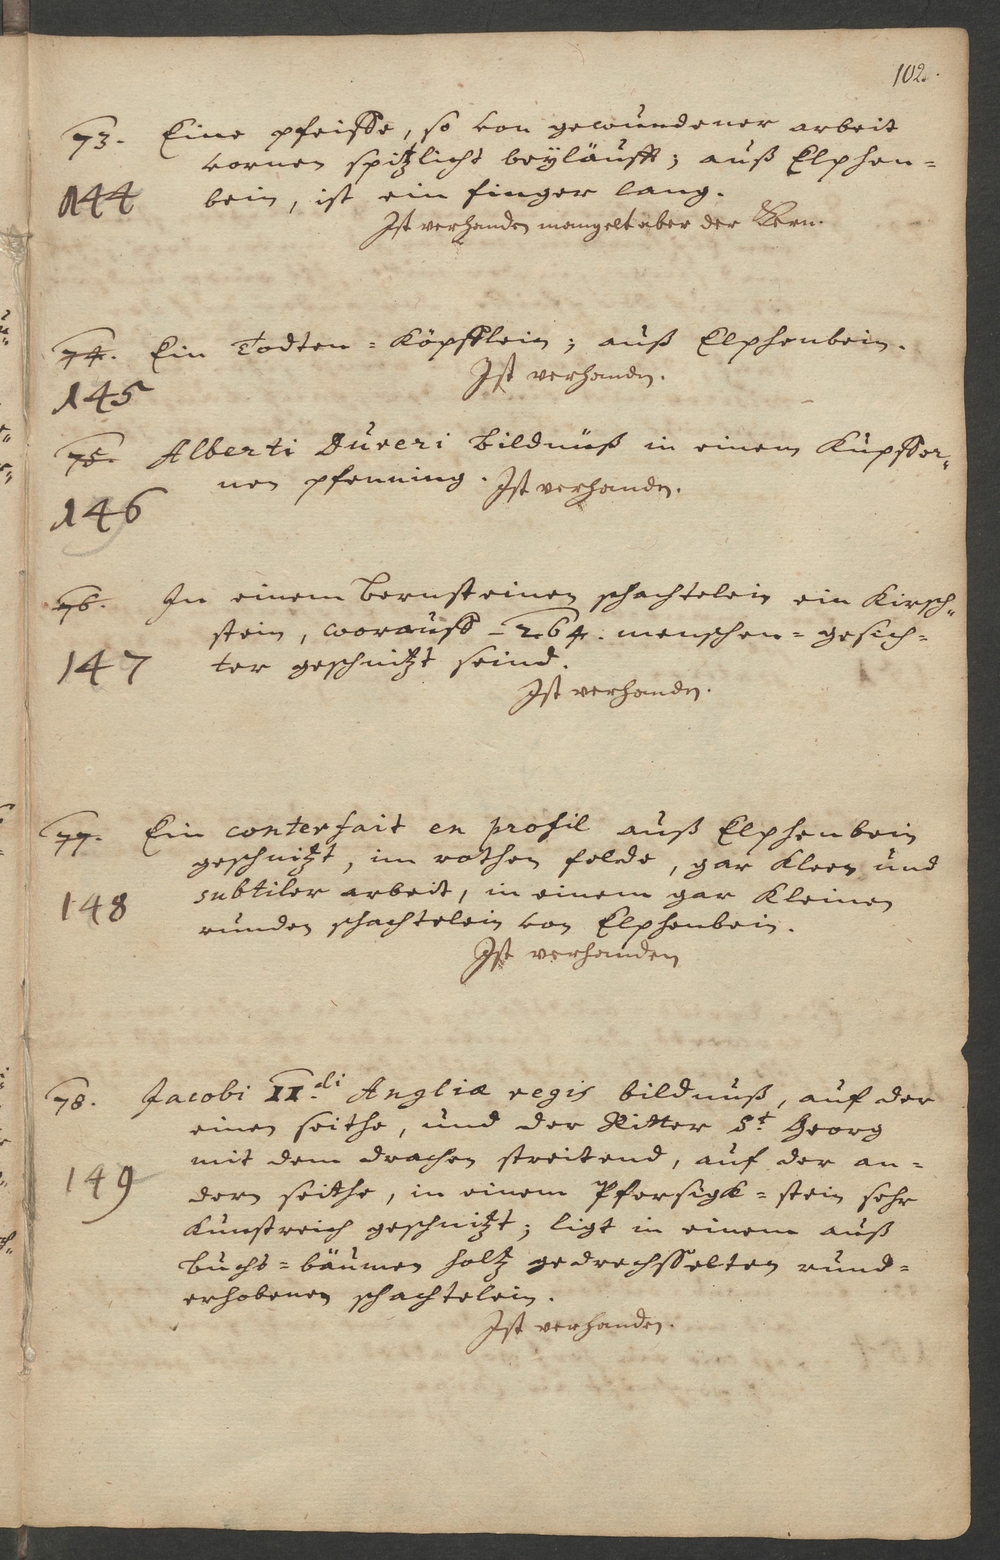 102.
73. Eine pfeiffe, so von gewundener arbeit
vornen spitzlicht beyläufft; auß Elphen=
144 bein, ist ein finger lang.
Ist verhanden mangelt aber der Kern.
74. Ein Todten=Köpfflein; auß Elphenbein.
Ist verhanden.
145
75. Alberti Düreri bildnüß in einem Kupffer,,
nen pfenning. Ist verhanden.
146
76. In einem bernsteinen schachtelein ein Kirsch,,
stein, worauff -264. menschen=gesich=
147 ter geschnitzt seind.
Ist verhanden.
77. Ein conterfait en profil auß Elphenbein
geschnitzt, im rothen felde, gar kleen und
148 subtiler arbeit, in einem gar kleinen
runden schachtelein von Elphenbein.
Ist verhanden
78. Jacobi II.di Angliæ regis bildnuß, auf der
einen seithe, und der Ritter St. Georg
149 mit dem drachen streitend, auf der an=
dern seithe, in einem Pfersigk=stein sehr
kunstreich geschnitzt; ligt in einem auß
buchs=bäumen holtz gedrechsselten rund=
erhobenen schachtelein.
Ist verhanden.